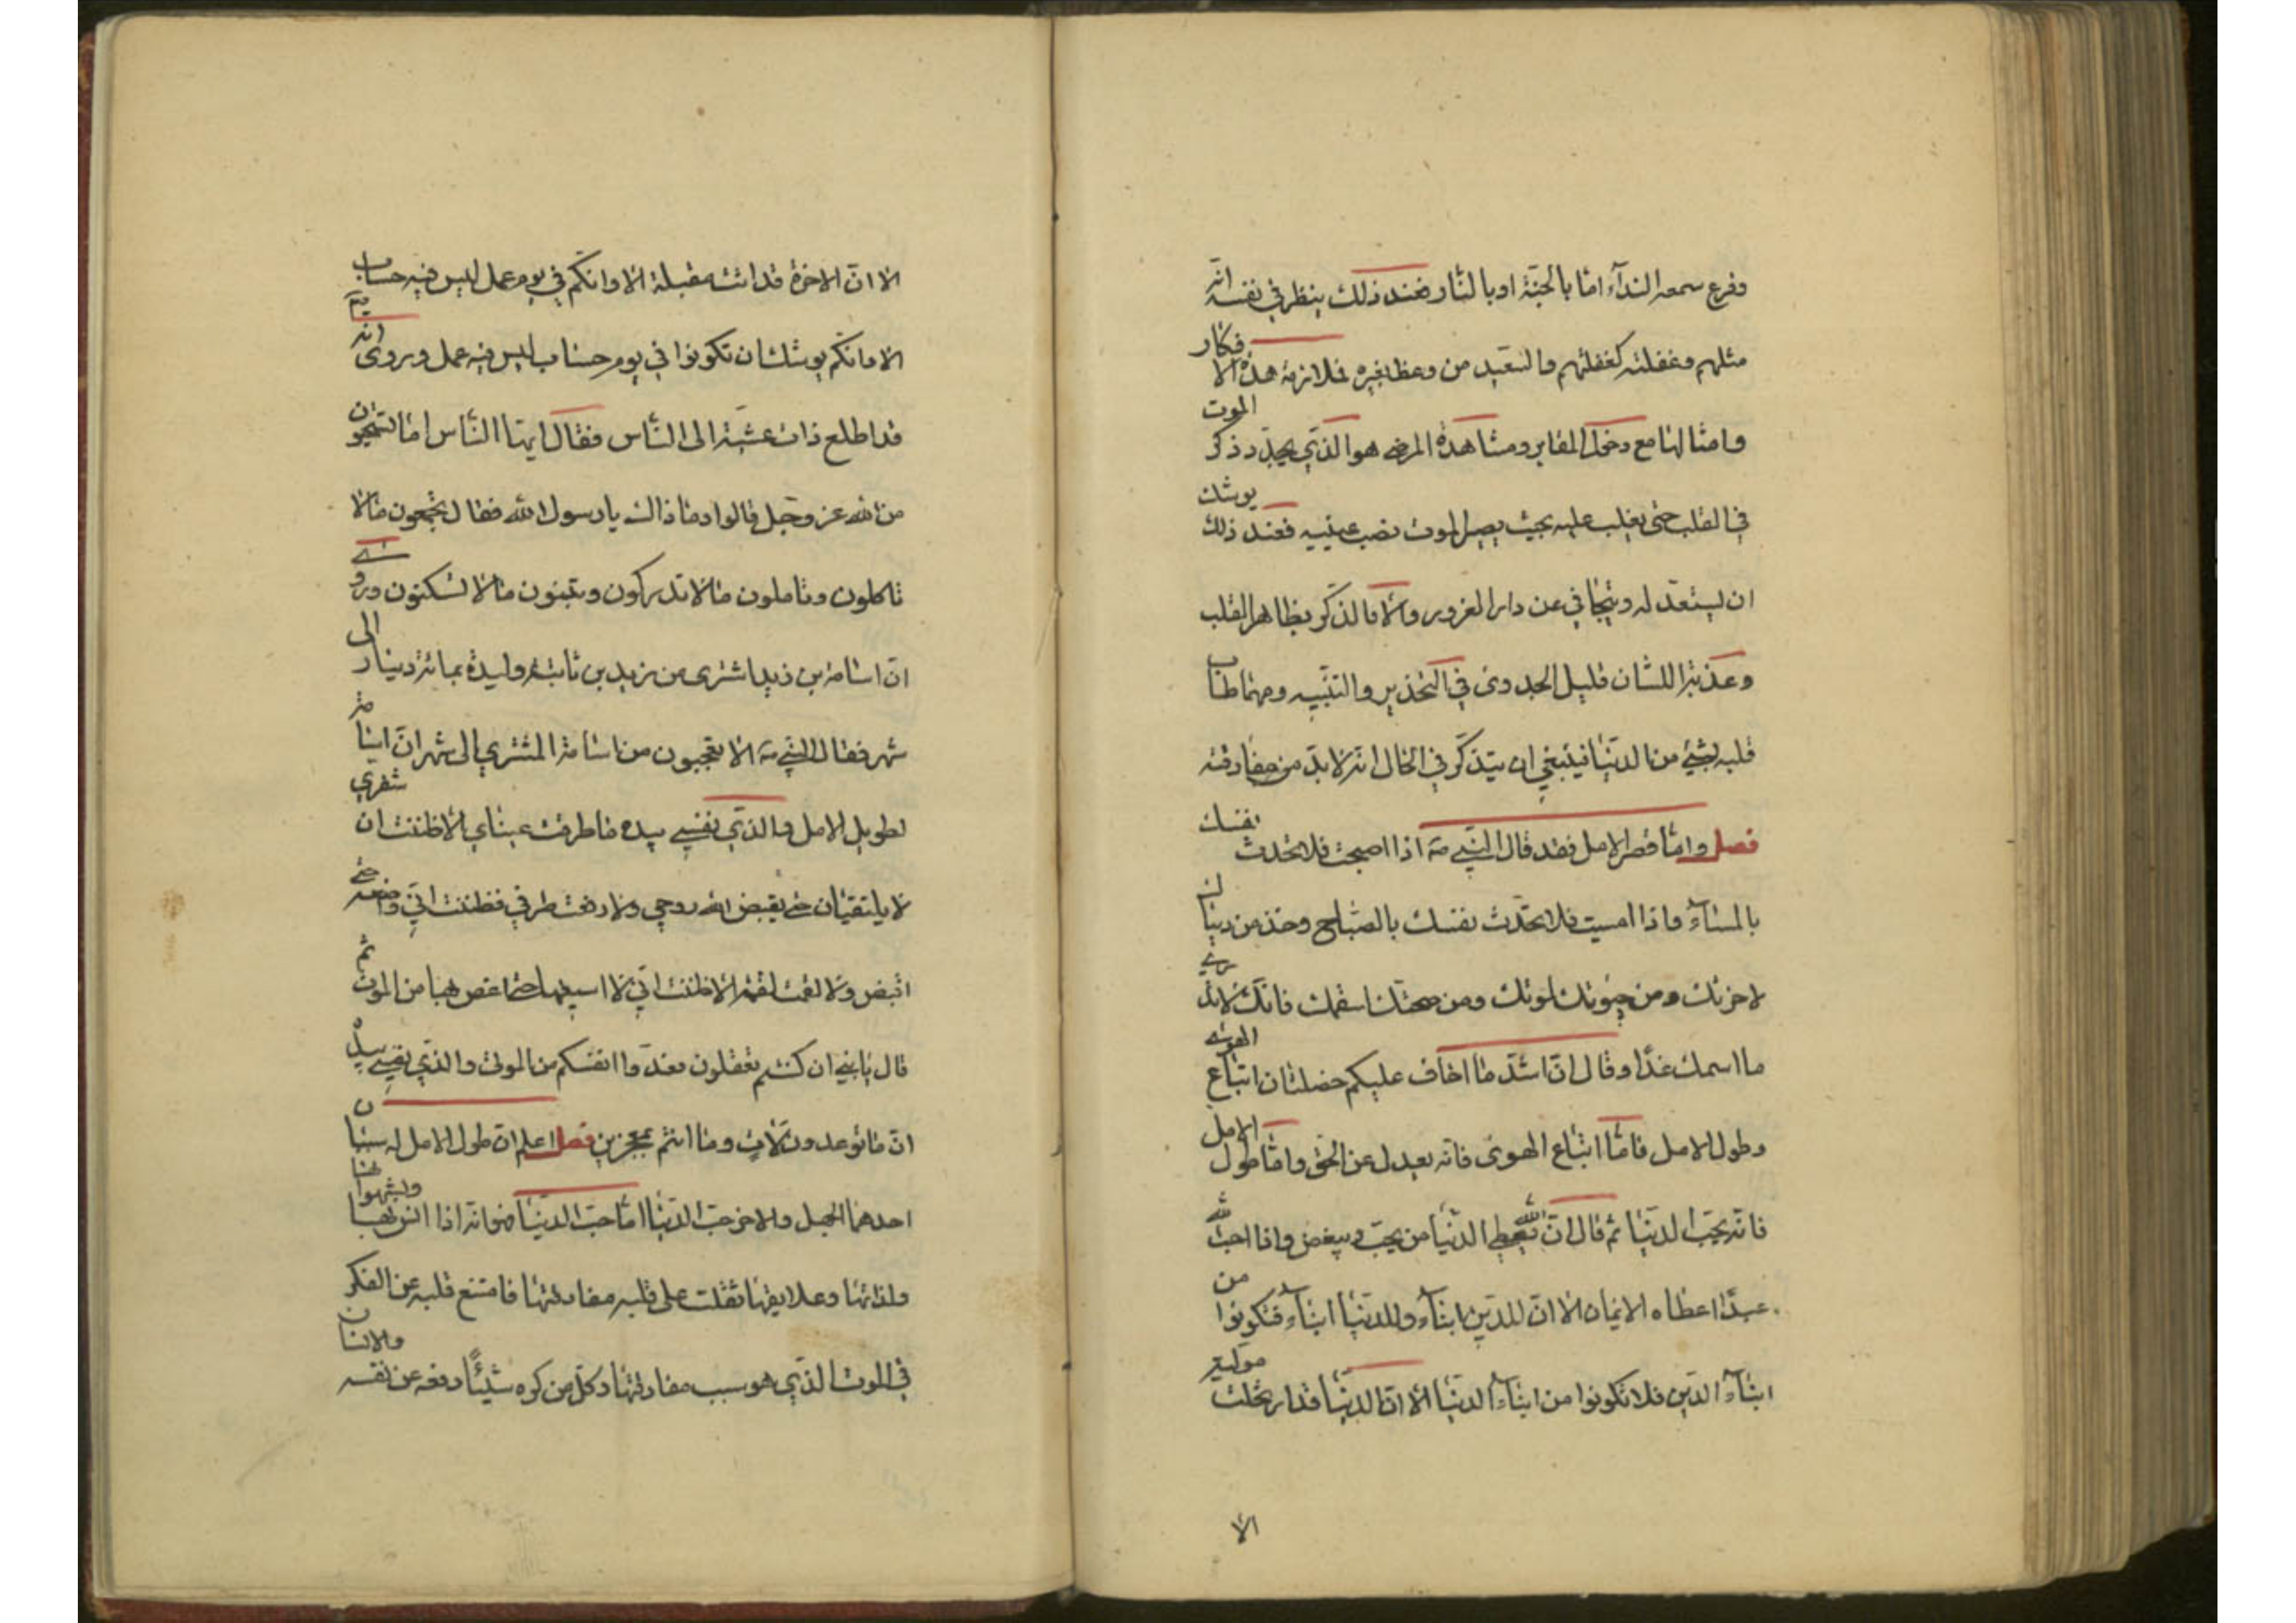 وقرع سمعه النداء امّا بالجنّة او بالنّار فعند ذلك ينظر في نفسه انّه
مثلهم وغفلته كغفلتهم والسّعيد من وعظ بغيره فملازمة هذه الافكار
وامثالها مع دخول المقابر ومشاهدة المرضى هو الذّي يجدّد ذكر الموت
في القلب حتى يغلب عليه بحيث يصير الموت نصب عينيه فعند ذلك يوشك
ان يستعدّ له ويتجافى عن دار الغرور والّا فالذّكر بظاهر القلب
وعذبة اللسّان قليل الجدوى في التّحذير والتّنبيه ومهما طاب
قلبه بشيء من الدنّيا فينبغي ان يتذكّر في الحال انّه لا بدّ من مفارقته
فصل وامّا قصر الامل فقد قال النّبي ص‍ اذا اصبحت فلا تحدّث نفسك
بالمساء واذا امسيت فلا تحدّث نفسك بالصّباح وخذ من دنياك
لاخرتك ومن حيوتك لموتك ومن صحتّك لسقمك فانّك لا تدري
ما اسمك غدًا وقال انّ اشدّ ما اخاف عليكم خصلتان اتّباع الهوى
وطول الامل فامّا اتّباع الهوى فانّه يعدل عن الحقّ وامّا طول الامل
فانّه يحبّ الدنّيا ثم قال انّ الله يعطي الدنّيا من يحبّ ويبغض واذا احبّ الله
عبدًا اعطاه الايمان الا انّ للدّين ابناء وللدنّيا ابناء فكونوا من
ابناء الدّين فلا تكونوا من ابناء الدنّيا الا انّ الدنّيا قد ارتحلت مولّية
الا
الا انّ الاخرة قد اتت مقبلة الا وانّكم في يوم عمل ليس فيه حساب
الا وانّكم يوشك ان تكونوا في يوم حساب ليس فيه عمل وروى انه ص‍
قد اطلع ذات عشيّة الى النّاس فقال ايهّا النّاس اما تستحيون
من الله عز وجلّ قالوا وما ذاك يا رسول الله فقال تجمعون ما لا
تاكلون وتاملون ما لا تدركون وتبنون ما لا تسكنون وروى
انّ اسامة بن زيد اشترى من زيد بن ثابت وليدة بمائة دينار الى
شهر فقال النّبي ص‍ الا تعجبون من اسامة المشتري الى شهر انّ اسامة
لطويل الامل والذّي نفسي بيده ما طرفت عيناي الّا ظننت ان شفري
لا يلتقيان حتى يقبض الله روحي ولا رفعت طرفي فظننت انّي واضعه حتى
اقبض ولا لقمت لقمة الّا ظننت انّي لا اسيغها حتى اغصّ بها من الموت ثم
قال يا بني ان كنتم تعقلون فعدّوا انفسكم من الموتى والذّي نفسي بيده
انّ ما توعدون لآت وما انتم بمعجزين فصل اعلم انّ طول الامل له سببان
احدهما الجهل والاخر حبّ الدنّيا امّا حبّ الدنّيا فهو انّه اذا انس بها وبشهواتها
ولذاتها وعلايقها ثقلت على قلبه مفارقتها فامتنع قلبه عن الفكر
في الموت الذّي هو سبب مفارقتها وكلّ من كره شيئًا دفعه عن نفسه والانسان